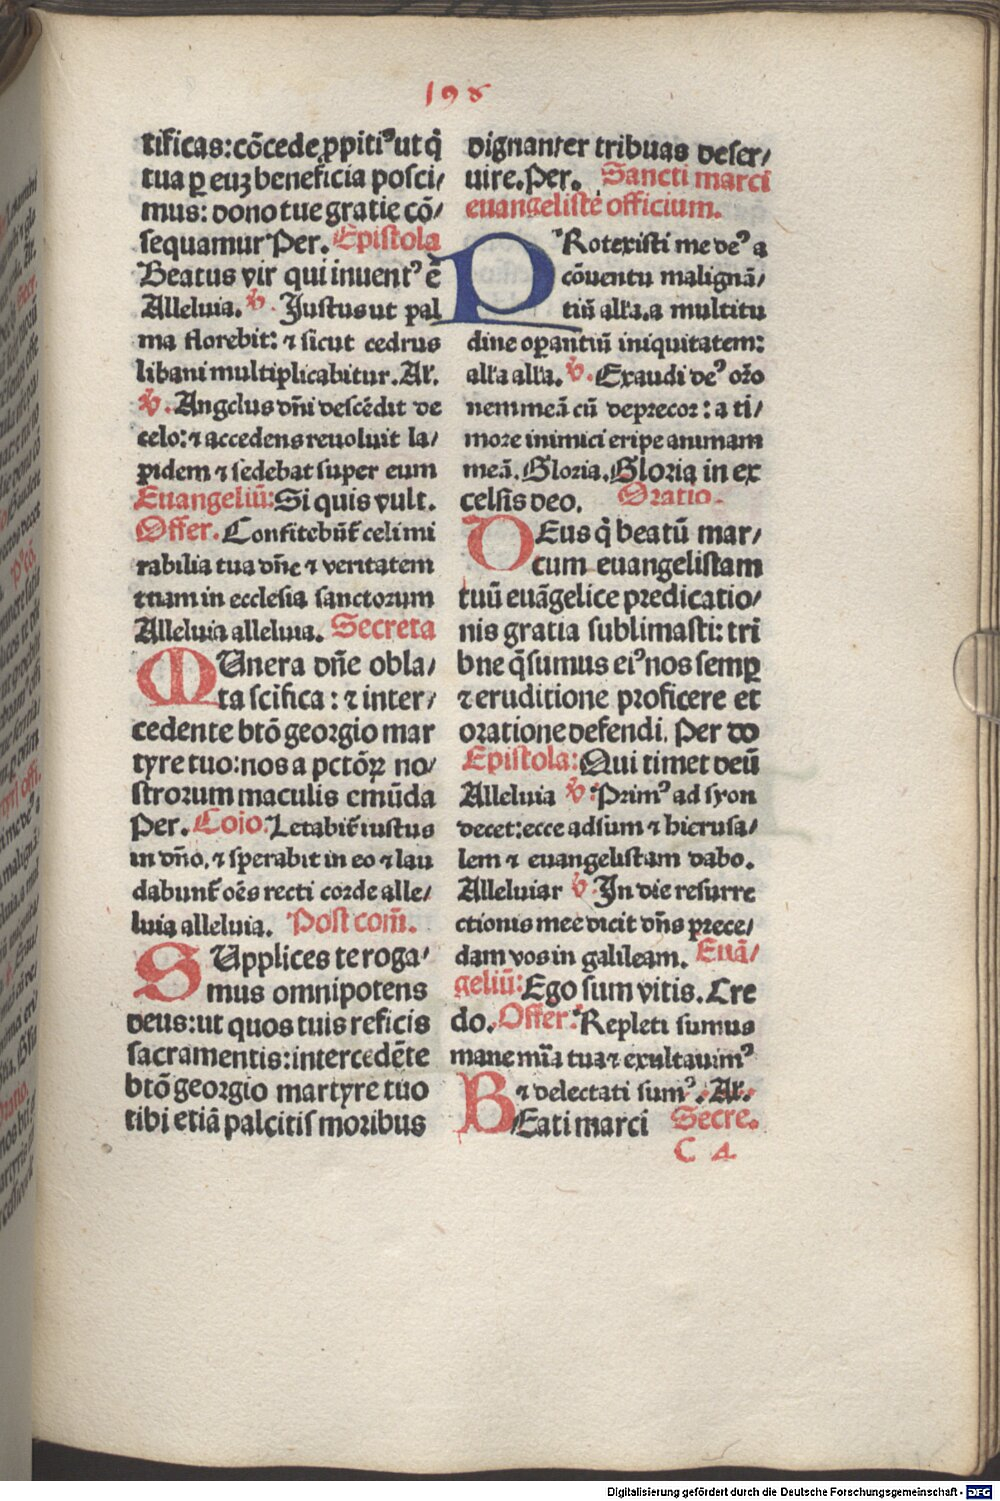 198
tificas:cōcede ꝓpitiꝰ ut q̄
tua ꝑ euꝫ beneficia posci/
mus: dono tue gratie cō/
sequamur Per. Epistola
Beatus vir qui inuentꝰ ē
Alleluia. ℣. Justus ut pal
ma florebit: ⁊ sicut cedrus
libani multiplicabitur. Ar.
℣. Angelus dn̄i descēdit de
celo: ⁊ accedens reuoluit la/
pidem ⁊ sedebat super eum
Euangeliū: Si quis vult.
Offer. Confitebūt celi mi
rabilia tua dn̄e ⁊ veritatem
tuam in ecclesia sanctorum
Alleluia alleluia. Secreta
MUnera dn̄e obla/
ta scifica: ⁊ inter/
cedente btō georgio mar
tyre tuo: nos a pctōꝝ no/
strorum maculis emūda
Per. Coīo. Letabit̄ iustus
in dn̄o, ⁊ sperabit in eo ⁊ lau
dabunt̄ oēs recti corde alle/
luia alleluia. Post com̄.
SUpplices te roga/
mus omnipotens
deus: ut quos tuis reficis
sacramentis: intercedēte
btō georgio martyre tuo
tibi etiā palcitis moribus
dignanter tribuas deser/
uire. Per. Sancti marci
euangeliste officium.
PRotexisti me deꝰ a
cōuentu malignā/
tiū allā. a multitu
dine oꝑantiū iniquitatem:
allā allā. ℣. Exaudi deꝰ orō
nem meā cū deprecor: a ti/
more inimici eripe animam
meā. Gloria. Gloria in ex
celsis deo. Oratio.
DEus q̄ beatū mar/
cum euangelistam
tuū euāgelice predicatio/
nis gratia sublimasti: tri
bne q̄sumus eiꝰ nos semꝑ
⁊ eruditione proficere et
oratione defendi. Per do
Epistola: Qui timet deū
Alleluia ℣. Primꝰ ad syon
decet: ecce adsum ⁊ hierusa/
lem ⁊ euangelistam dabo.
Alleluiar ℣. In die resurre
ctionis mee dicit dn̄s prece/
dam vos in galileam. Euā/
geliū: Ego sum vitis. Cre
do. Offer. Repleti sumus
mane mīa tua ⁊ exultauimꝰ
⁊ delectati sumꝰ. Ar.
BEati marci Secre.
C 4
Digitalisierung gefördert durch die Deutsche Forschungsgemeinschaft - DFG